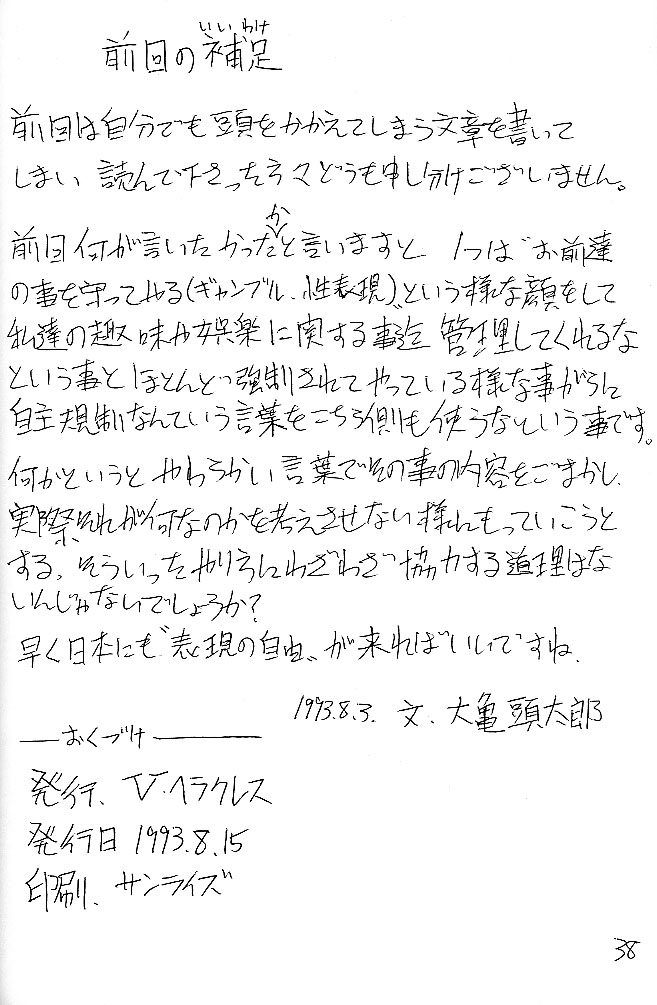 いいわけ
前回の補足
前回は自分でも頭をかかえてしまう文章を書いて
しまい 読んで下さった方々どうも申し分けございません。
か
前回何が言いたかったと言いますと 1つは〝お前達
の事を守ってやる(ギャンブル、性表現)〟という様な顔をして
私達の趣味や娯楽に関する事迄 管理してくれるな
という事と ほとんどっ強制されてやっている様な事がらに
自主規制なんていう言葉をこちら側も使うなという事です。
何かというと やわらかい言葉でその事の内容をごまかし、
実際それが何なのかを考えさせない様にもっていこうと
する、そういったやり方にわざわざ協力する道理はな
いんじゃないでしょうか?
早く日本にも〝表現の自由〟が来ればいいですね.
1993.8.3. 文、大亀頭太郎
―おくづけ―
発行、V.ヘラクレス
発行日 1993.8.15
印刷、サンライズ
38